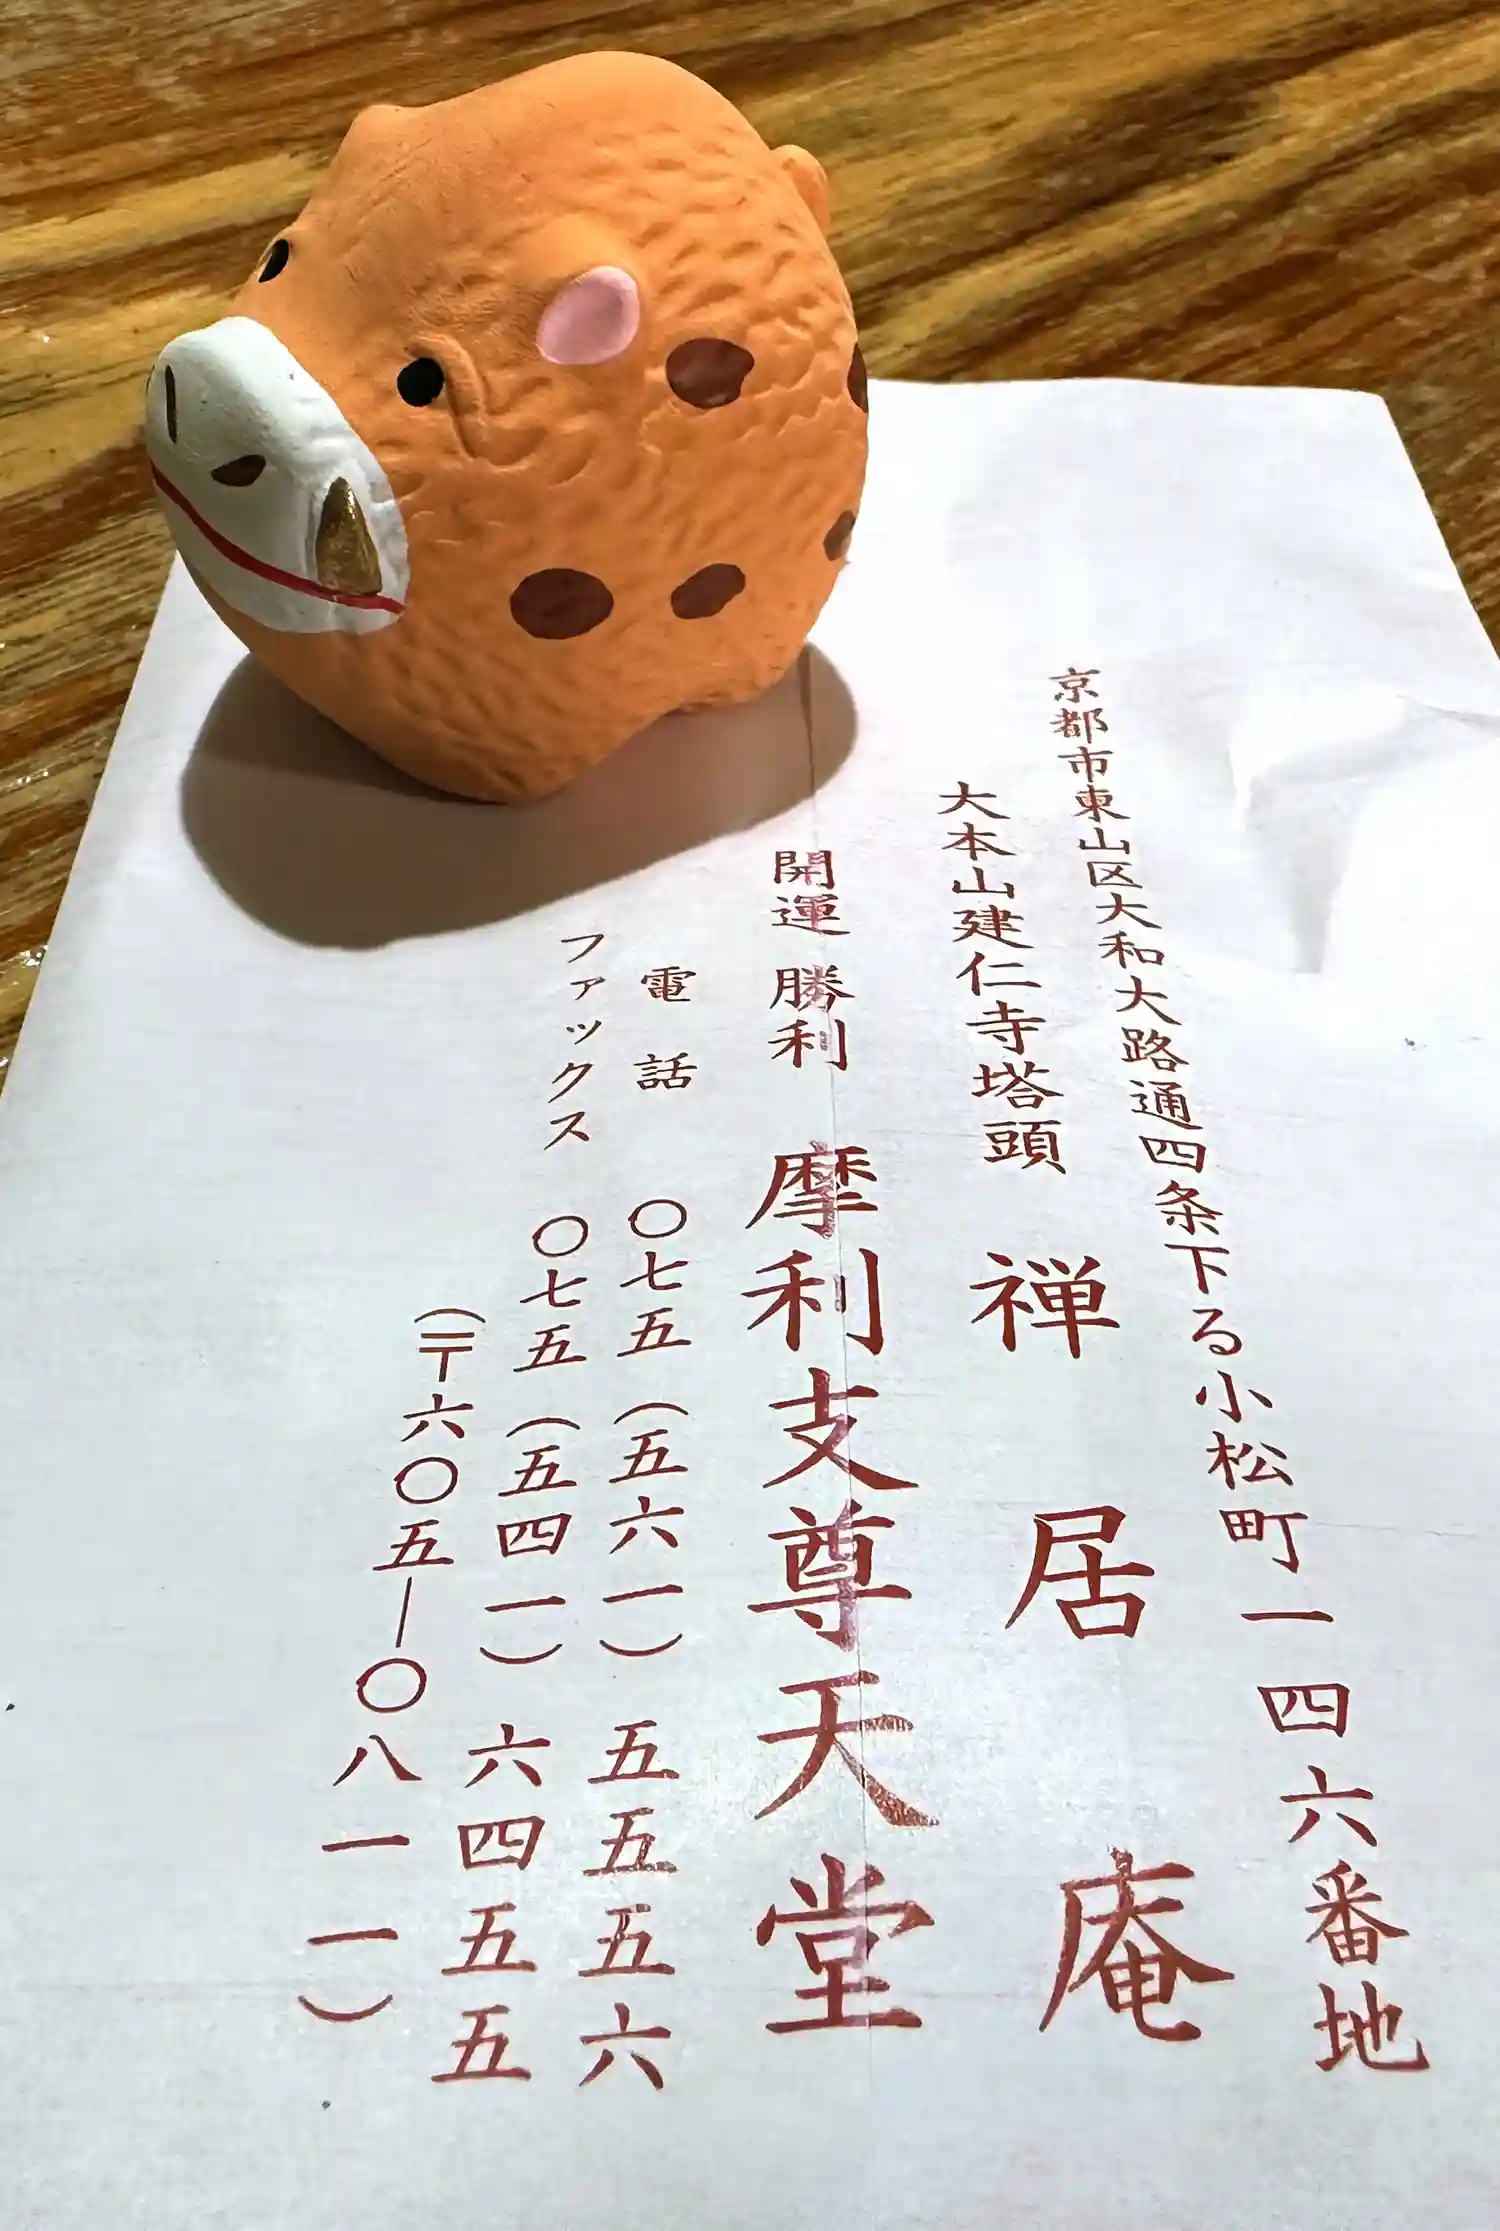 京都市東山区大和大路通四条下る小松町一四六番地
大本山建仁寺塔頭 禅居庵
開運 勝利 摩利支尊天堂
電話 〇七五(五六一)五五五六
ファックス 〇七五(五四一)六四五五
(〒六〇五―〇八一一)